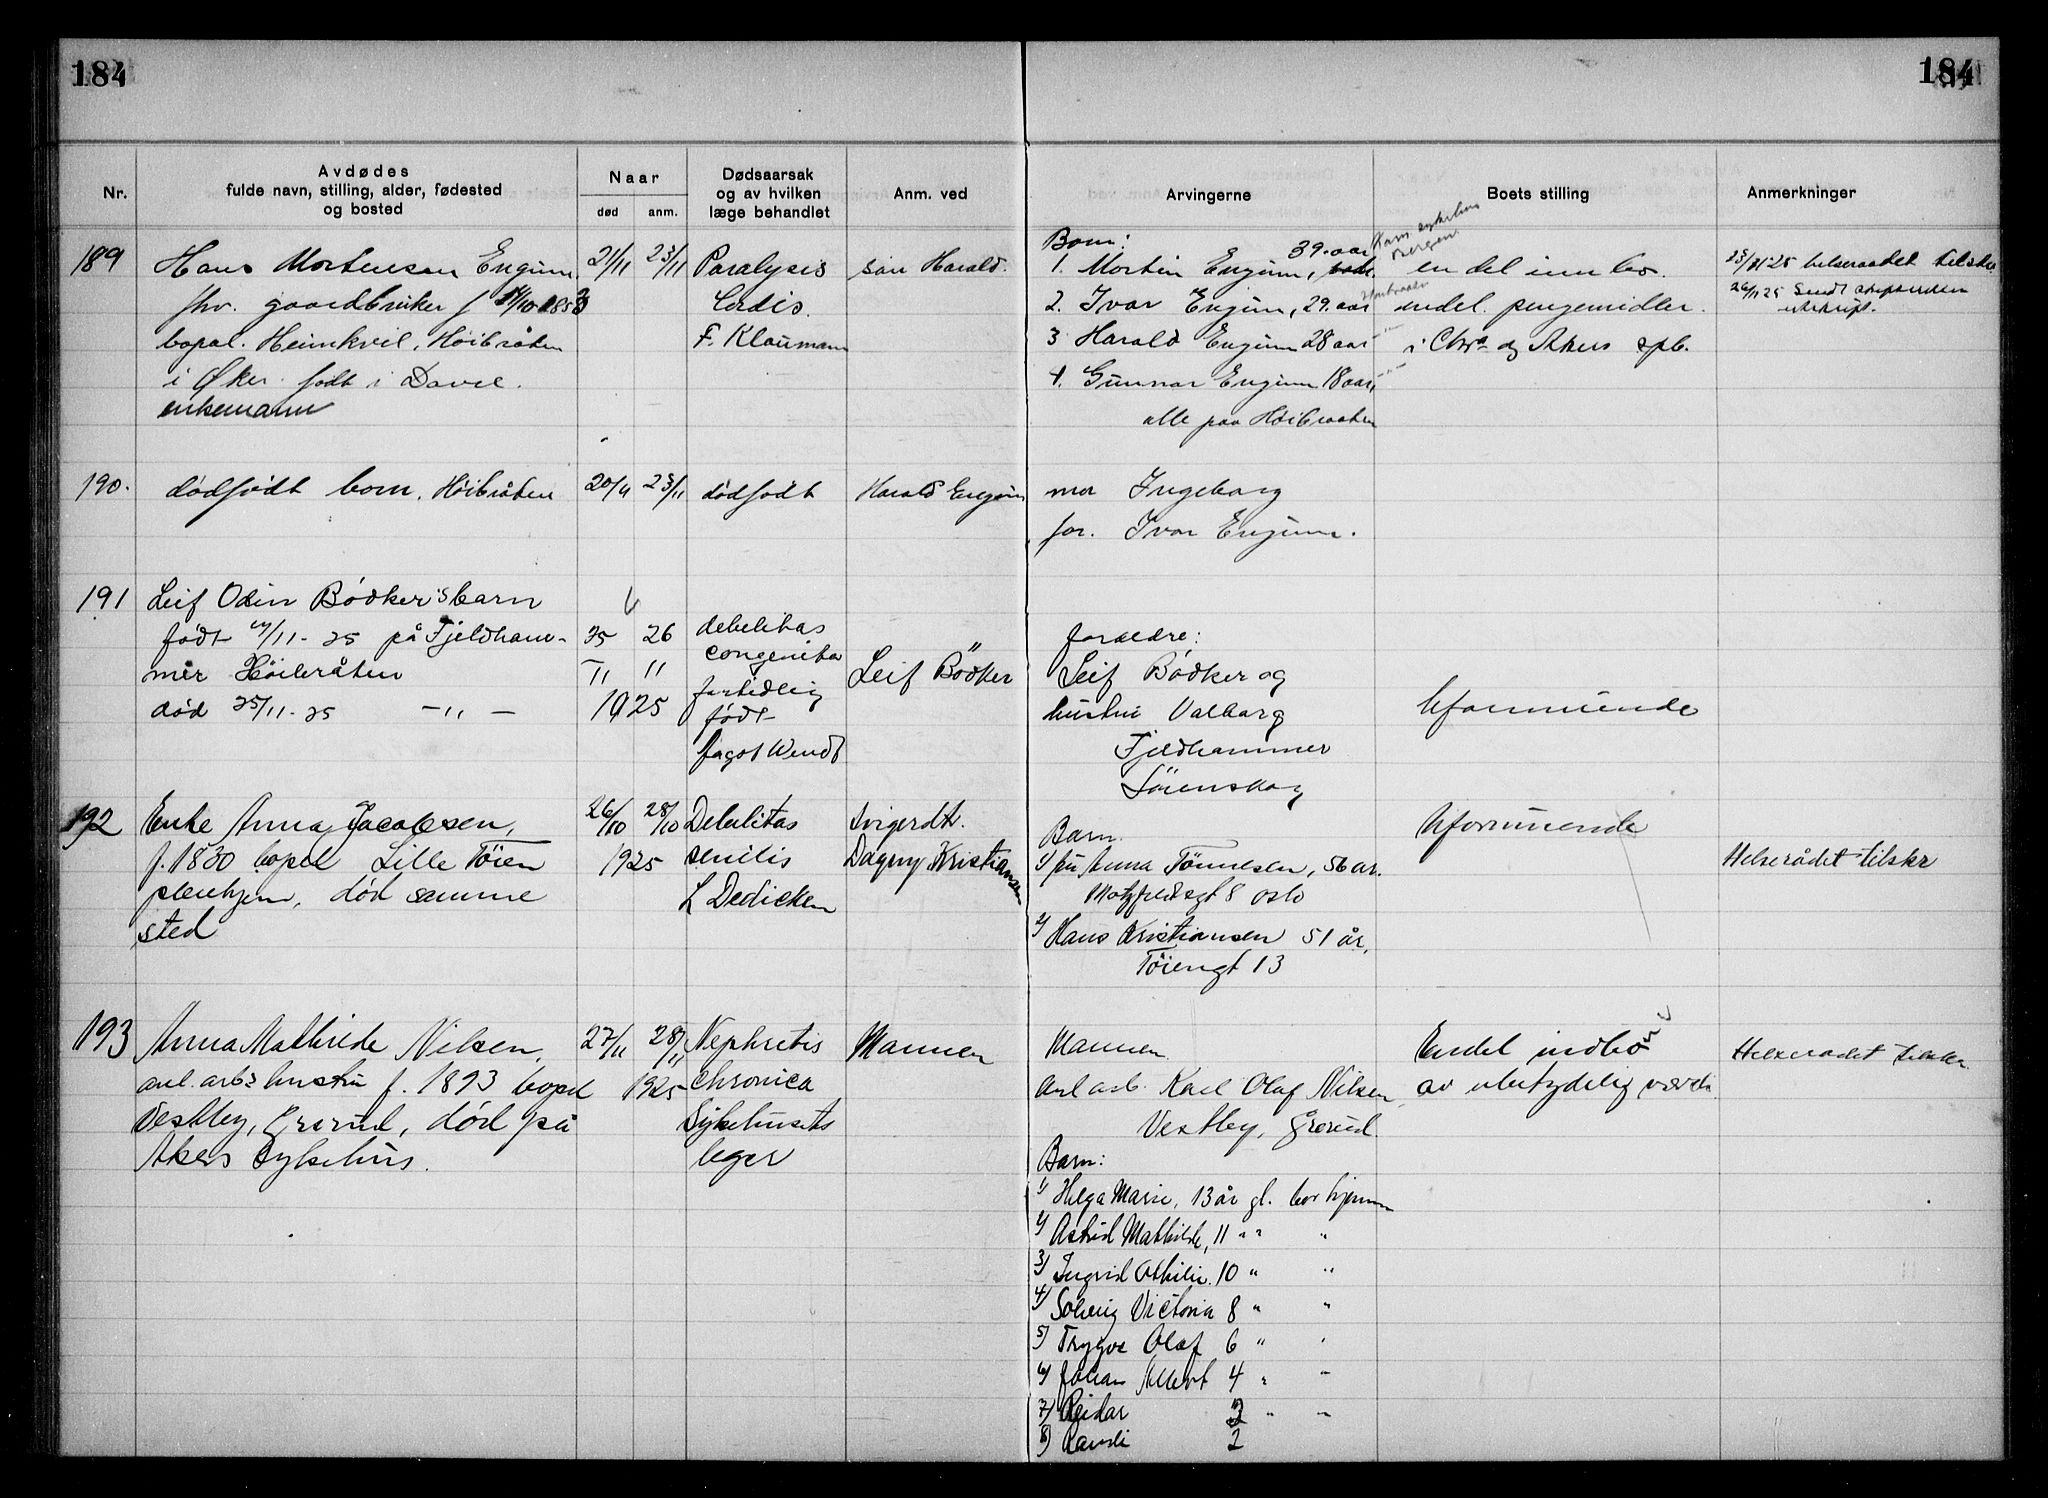 184
184
Nr.
Avdødes
fulde navn, stilling, alder, fødested
og bosted
Naar
død
anm.
Dødsaarsak
og av hvilken
læge behandlet
Anm. ved
Arvingerne
Boets stilling
Anmerkninger
189
Hans Mortensen Engum
fhv. gaardbruker f
bopæl. Heimkvil, Høibråten
i Øker. født i
enkemann
21/11
23/11
Paralysis
Cordis.
F. Klaumann
søn Harald.
Barn:
39 aar
1. Morten Engum,
2. Ivar Engum, 29. aar
3 Harald Engum 28 aar
4. Gunnar Engum 18 aar,
alle paa Høibraaten
en del innbo.
endel pengemidler.
i Chra og Akers spb.
23/11 25 helseraadet tilskr.
26/11 25 Sendt
utskrift.
190.
dødfødt barn, Høibråten
20/11
23/11
dødfødt
Harald Engum
mor Ingeborg
far. Ivar Engum.
191
Leif Odin Bödker's barn
født /11-25 på Fjeldham-
mer Høibråten
død 25/11-25 -"-
25 26
11 11
1925
debilitas
congenita
fortidlig
født
Leif Bödker
foreldre:
Leif Bödker og
hustru Valborg
Fjeldhammer
Lörenskog
Uformuende
192
Enke Anna Jacobsen,
f. 1830 bopæl Lille Töien
pleiehjem, död samme
sted
26/10
28/10
1925
Debilitas
senilis
L Dedichen
Svigerdt.
Dagny Kristiansen
Barn.
1) fru Anna Tönnesen, 56 år.
Motzfeldtsgt 8 Oslo
2) Hans Kristiansen 51 år,
Töiengt 13
Uformuende
Helserådet tilskr
193
Anna Mathilde Nilsen,
anl. arbs hustru f. 1893 bopæl
Vestby, Grorud, död på
Akers Sykehus.
27/11
28/11
1925
Nephritis
chronica
Sykehusets
leger
Mannen
Mannen
anl arb. Karl Olaf Nilsen
Vestby, Grorud.
Barn:
1) Helga Marie, 13 år gl. bor hjemme
2) Astrid Mathilde, 11 " " "
3) Ingrid Othilie. 10 " "
4) Solveig Victoria 8 " "
5) Trygve Olaf 6 " "
6) Johan Albert 4 " "
7) Reidar 3 " "
8) Randi 2
Endel indbo
av ubetydelig værdi
Helserådet tilskr.